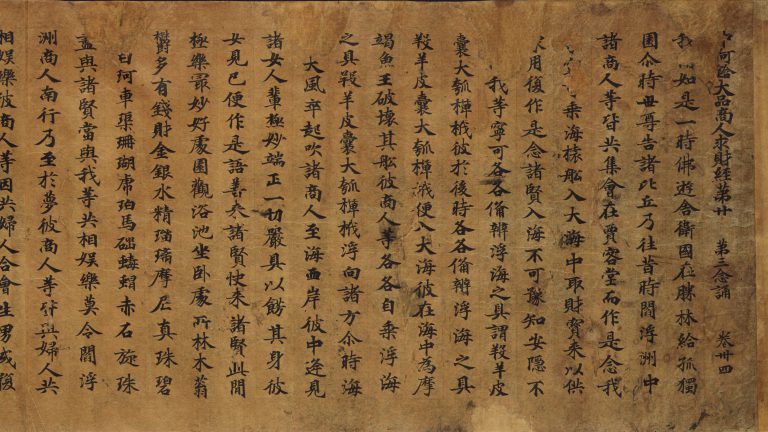 阿含大品商人求財經第廿 第三念誦 卷卅四
我如是一時佛遊舍衛國在勝林給孤獨
園尒時世尊告諸比丘乃往昔時閻浮洲中
諸商人等皆共集會在賈客堂而作是念我
乘海裝舩入大海中取財寶来以供
家用復作是念諸賢入海不可豫知安隱不
我等寧可各各備辦浮海之具謂羖羊皮
囊大瓠椑栰彼於後時各各備辦浮海之具
羖羊皮囊大瓠椑栰便入大海彼在海中為摩
竭魚王破壞其舩彼商人等各各自乘浮海
之具羖羊皮囊大瓠椑栰浮向諸方尒時海
大風卒起吹諸商人至海西岸彼中逢見
諸女人輩極妙端正一切嚴具以餝其身彼
女見已便作是語善来諸賢快来諸賢此間
極樂最妙好處園觀浴池坐臥處所林木蓊
欝多有錢財金銀水精琉璃摩尼真珠碧
白珂車渠珊瑚虎珀馬碯蝳蝐赤石旋珠
盡與諸賢當與我等共相娛樂莫令閻浮
洲商人南行乃至於夢彼商人等皆與婦人共
相娛樂彼商人等因共婦人合會生男或復